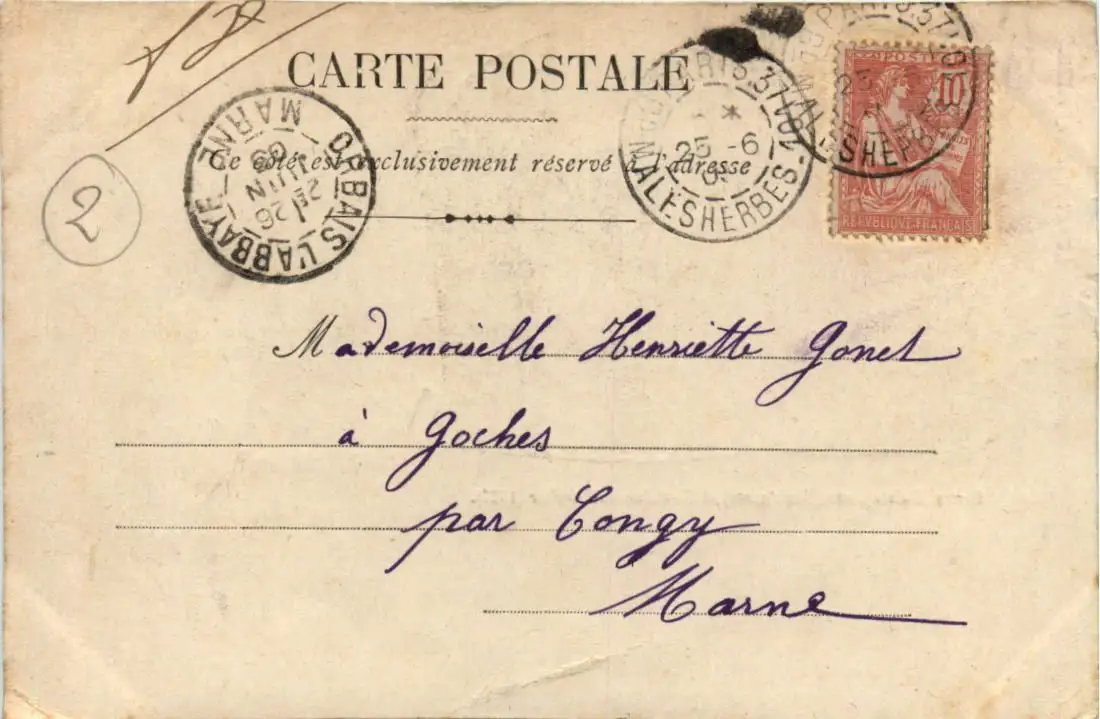 CARTE POSTALE
Ce côté est exclusivement réservé à l'adresse
PARIS 37
25 -6
MALESHERBES
POSTES
10
REPUBLIQUE FRANÇAISE
ORBAIS L'ABBAYE
MARNE
26
JUIN
03
2
Mademoiselle Henriette Gonet
à Goches
par Congy
Marne